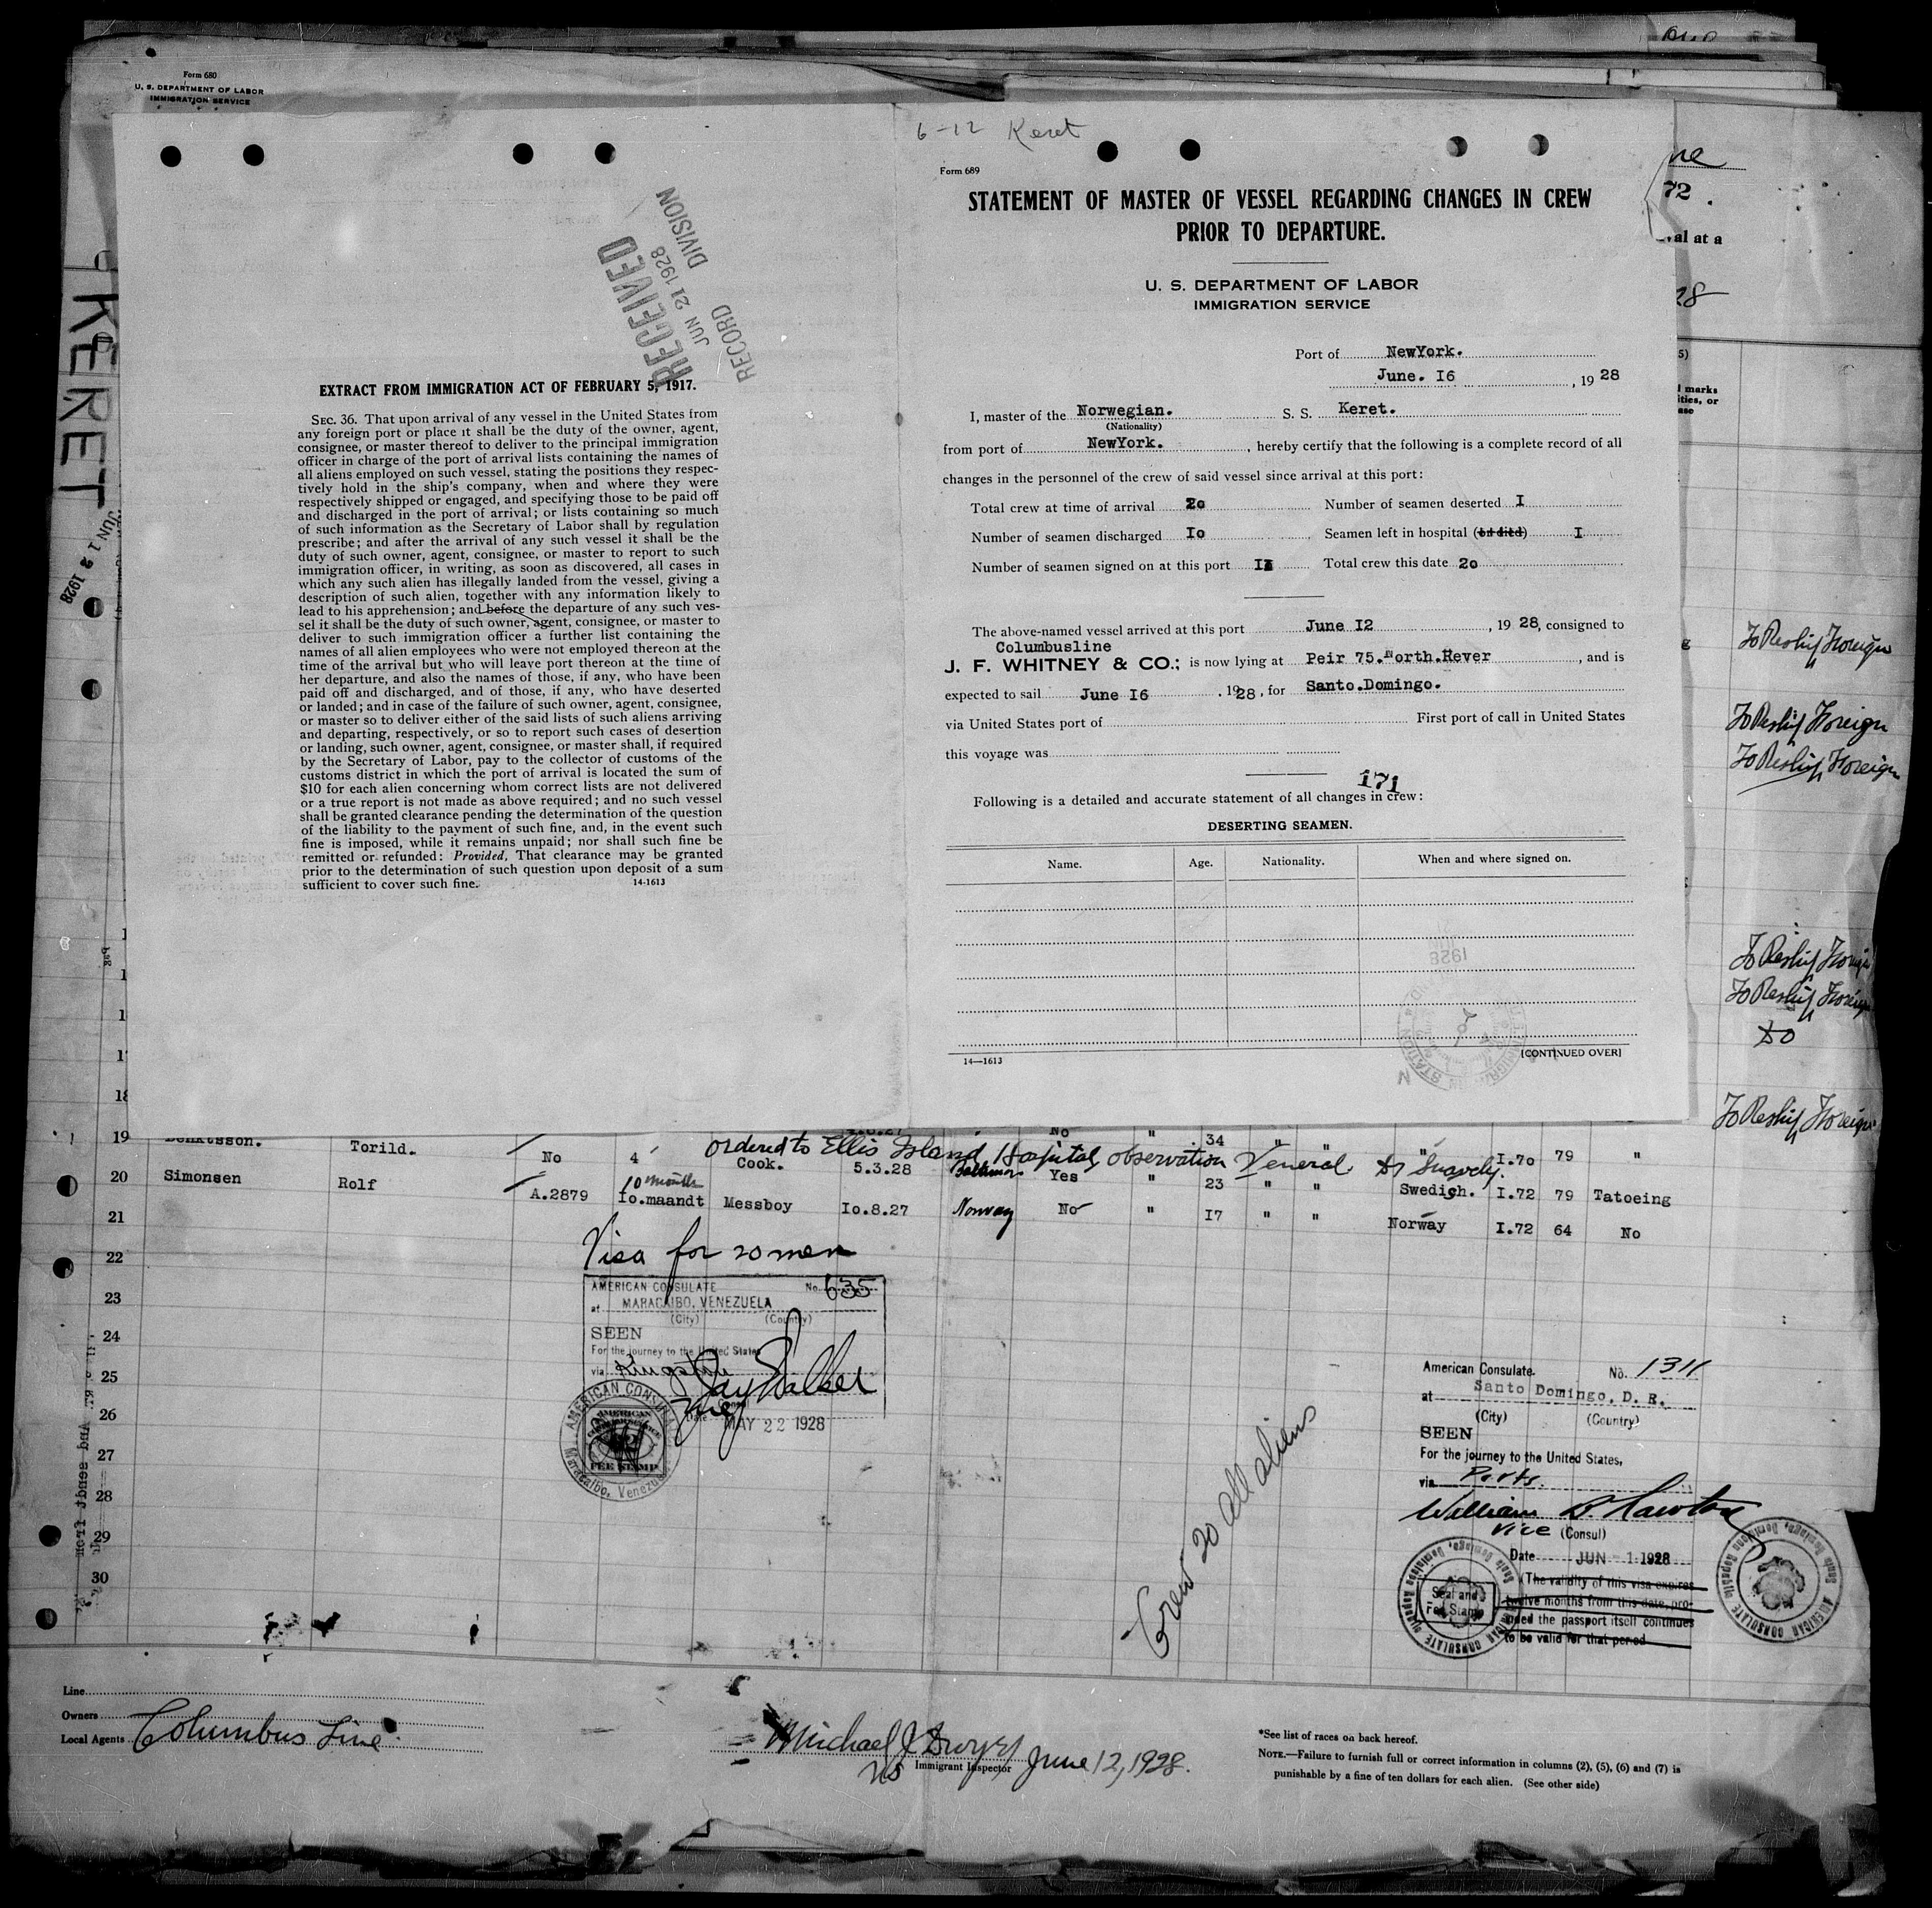 Form 680
U. S. DEPARTMENT OF LABOR
IMMIGRATION SERVICE
KERET
JUN 12 1928
RECEIVED
JUN 21 1928
RECORD DIVISION
EXTRACT FROM IMMIGRATION ACT OF FEBRUARY 5, 1917.
SEC. 36. That upon arrival of any vessel in the United States from
any foreign port or place it shall be the duty of the owner, agent,
consignee, or master thereof to deliver to the principal immigration
officer in charge of the port of arrival lists containing the names of
all aliens employed on such vessel, stating the positions they respec-
tively hold in the ship's company, when and where they were
respectively shipped or engaged, and specifying those to be paid off
and discharged in the port of arrival; or lists containing so much
of such information as the Secretary of Labor shall by regulation
prescribe; and after the arrival of any such vessel it shall be the
duty of such owner, agent, consignee, or master to report to such
immigration officer, in writing, as soon as discovered, all cases in
which any such alien has illegally landed from the vessel, giving a
description of such alien, together with any information likely to
lead to his apprehension; and before the departure of any such ves-
sel it shall be the duty of such owner, agent, consignee, or master to
deliver to such immigration officer a further list containing the
names of all alien employees who were not employed thereon at the
time of the arrival but who will leave port thereon at the time of
her departure, and also the names of those, if any, who have been
paid off and discharged, and of those, if any, who have deserted
or landed; and in case of the failure of such owner, agent, consignee,
or master so to deliver either of the said lists of such aliens arriving
and departing, respectively, or so to report such cases of desertion
or landing, such owner, agent, consignee, or master shall, if required
by the Secretary of Labor, pay to the collector of customs of the
customs district in which the port of arrival is located the sum of
$10 for each alien concerning whom correct lists are not delivered
or a true report is not made as above required; and no such vessel
shall be granted clearance pending the determination of the question
of the liability to the payment of such fine, and, in the event such
fine is imposed, while it remains unpaid; nor shall such fine be
remitted or refunded: Provided, That clearance may be granted
prior to the determination of such question upon deposit of a sum
sufficient to cover such fine. 14-1613
6-12 Keret
Form 689
STATEMENT OF MASTER OF VESSEL REGARDING CHANGES IN CREW
PRIOR TO DEPARTURE.
U. S. DEPARTMENT OF LABOR
IMMIGRATION SERVICE
Port of NewYork.
June. I6, 19 28
I, master of the Norwegian. S. S. Keret.
(Nationality)
from port of NewYork., hereby certify that the following is a complete record of all
changes in the personnel of the crew of said vessel since arrival at this port:
Total crew at time of arrival 2o Number of seamen deserted I
Number of seamen discharged Io Seamen left in hospital (or died) I
Number of seamen signed on at this port Total crew this date 2o
The above-named vessel arrived at this port June I2, 19 28, consigned to
Columbusline
J. F. WHITNEY & CO.; is now lying at Peir 75.North.Rever, and is
expected to sail June I6, 1928, for Santo.Domingo.
via United States port of First port of call in United States
this voyage was
171
Following is a detailed and accurate statement of all changes in crew:
DESERTING SEAMEN.
Name. Age. Nationality. When and where signed on.
1928
14—1613
[CONTINUED OVER]
ne
72.
val at a
28
5)
l marks
ities, or
ase
To Reship Foreign
To Reship Foreign
To Reship Foreign
To Reship Foreign
To Reship Foreign
do
To Reship Foreign
18
19 Torild. No 4 Cook. 5.3.28 Yes " 23 " " Swedish. I.72 79 Tatoeing
No " 34 " " " I.70 79 "
ordered to Ellis Island Hospital, observation Veneral.
20 Simonsen Rolf A.2879 Io.maandt 10 months Messboy Io.8.27 Norway No " I7 " " Norway I.72 64 No
21
22
23
24
25
26
27
28
29
30
Visa for 20 men
AMERICAN CONSULATE No. 635
at MARACAIBO, VENEZUELA
(City) (Country)
SEEN
For the journey to the United States
via Kingston
Jay Walker
Date MAY 22 1928
AMERICAN CONSULATE
Maracaibo, Venezuela
AMERICAN
FEE STAMP
Crew 20 all aliens
American Consulate. No. 1311
at Santo Domingo, D. R.
(City) (Country)
SEEN
For the journey to the United States,
via Ports.
William B. Lawton
Vice (Consul)
Date JUN - 1 1928
(The validity of this visa expires
twelve months from this date, pro-
vided the passport itself continues
to be valid for that period
Seal and
Fee Stamp
AMERICAN CONSULATE
Santo Domingo, Dominican Republic
Line
Owners
Local Agents Columbus Line
Michael J Dwyer June 12, 1928.
Immigrant Inspector
*See list of races on back hereof.
NOTE.—Failure to furnish full or correct information in columns (2), (5), (6) and (7) is
punishable by a fine of ten dollars for each alien. (See other side)